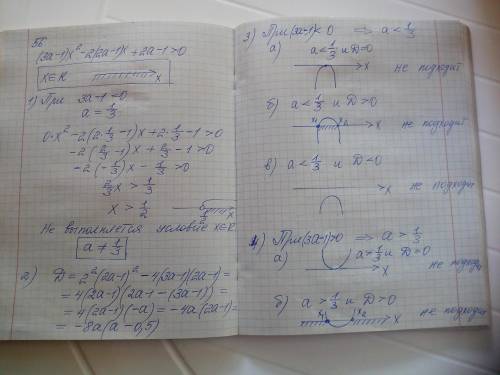 5б
(3a-1)x²-2(2a-1)x+2a-1>0
x∈R x
1) При 3a-1=0
a=1/3
0·x²-2(2·1/3-1)x+2·1/3-1>0
-2(2/3-1)x+2/3-1>0
-2(-1/3)x-1/3>0
2/3x>1/3
x>1/2 1/2 x
Не выполняется условие x∈R
a≠1/3
2) D=2²(2a-1)²-4(3a-1)(2a-1)=
=4(2a-1)(2a-1-(3a-1))=
=4(2a-1)(-a)=-4a(2a-1)=
=-8a(a-0,5)
3) При(3a-1)<0 ⟹ a<1/3
а) a<1/3 и D=0
x не подходит
б) a<1/3 и D>0
x₁ x₂ x не подходит
в) a<1/3 и D<0
x не подходит
4) При(3a-1)>0 ⟹ a>1/3
а) a>1/3 и D=0
x не подход
б) a>1/3 и D>0
x₁ x₂ x не подходит